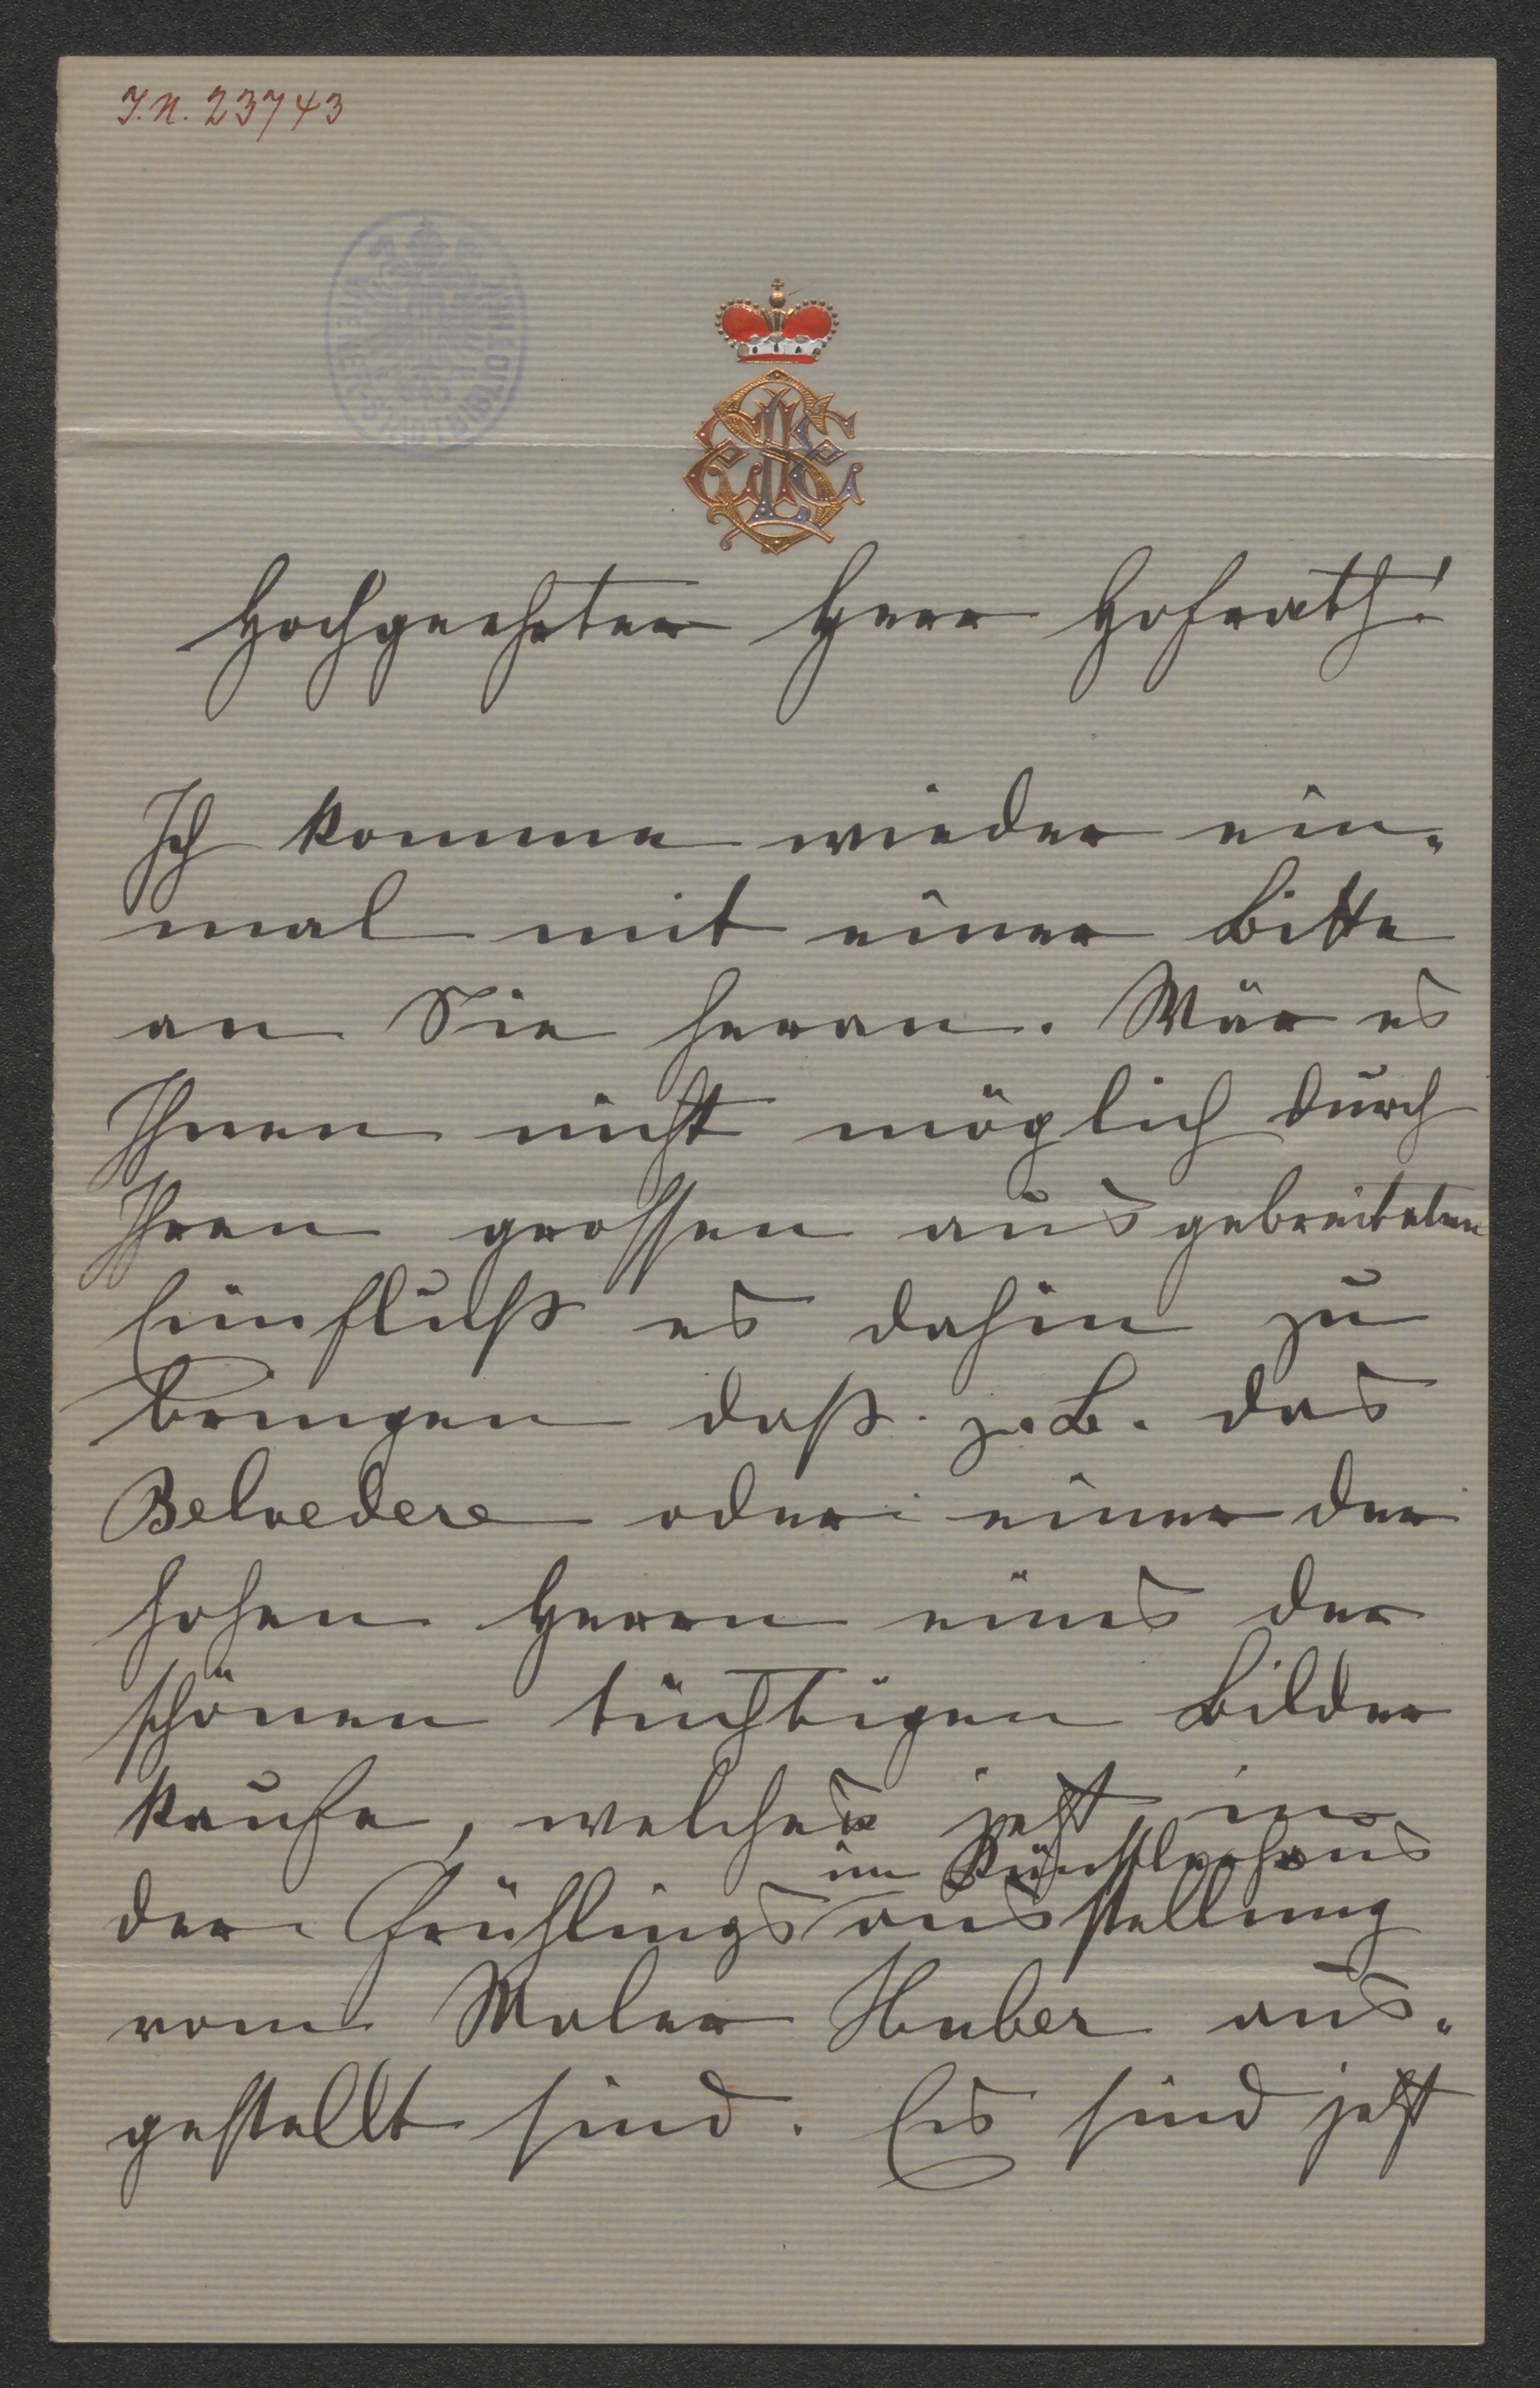 I.N. 23743
WIENER STADTBIBLIOTHEK
Hochgeehrter Herr Hofrath!
Ich komme wieder ein-
mal mit einer Bitte
an Sie heran. Wär es
Ihnen nicht möglich durch
Ihren grossen ausgebreiteten
Einfluß es dahin zu
bringen daß z. B. das
Belvedere oder einer der
hohen Herrn eines der
schönen tüchtigen Bilder
kaufe, welche jetzt in
im Künstlerhaus
der Frühlingsausstellung
vom Maler Huber aus-
gestellt sind. Es sind jetzt